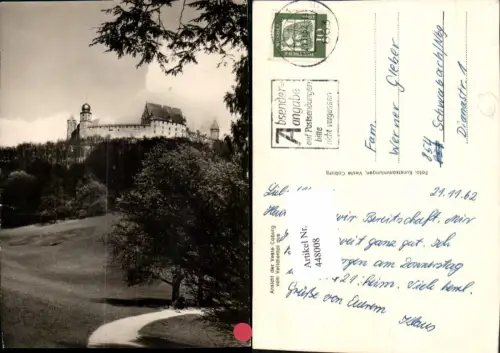 Absender-
angabe
auf Postsendungen
bitte
nicht vergessen
Fam.
Werner Gleber
854 Schwabach/Nbg
Dianastr. 1
Foto: Kunstsammlungen, Veste Coburg
Ansicht der Veste Coburg
vom Veilchental aus
21.11.62
wir Bereitschaft. Mir
weit ganz gut. Ich
morgen am Donnerstag
21 heim. Viele herzl.
Grüße von Eurem
Klaus
Artikel Nr.
448008